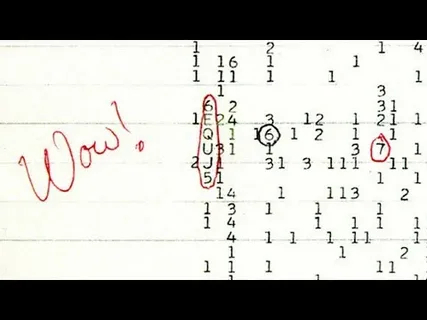 1 2 1 4
1 16 1 1
1 11 1 1 1
1 3
6 2 31
1 E 24 3 12 1 21 1
Q 1 16 1 2 1 1
U 31 1 3 7 1
2 J 1 31 3 111 11
5 1 1 1
14 1 111 2
1 3 1 1 1
1 1 1 1 1
4 1 1 11 1
1 1 2
1 1 1 11
Wow!